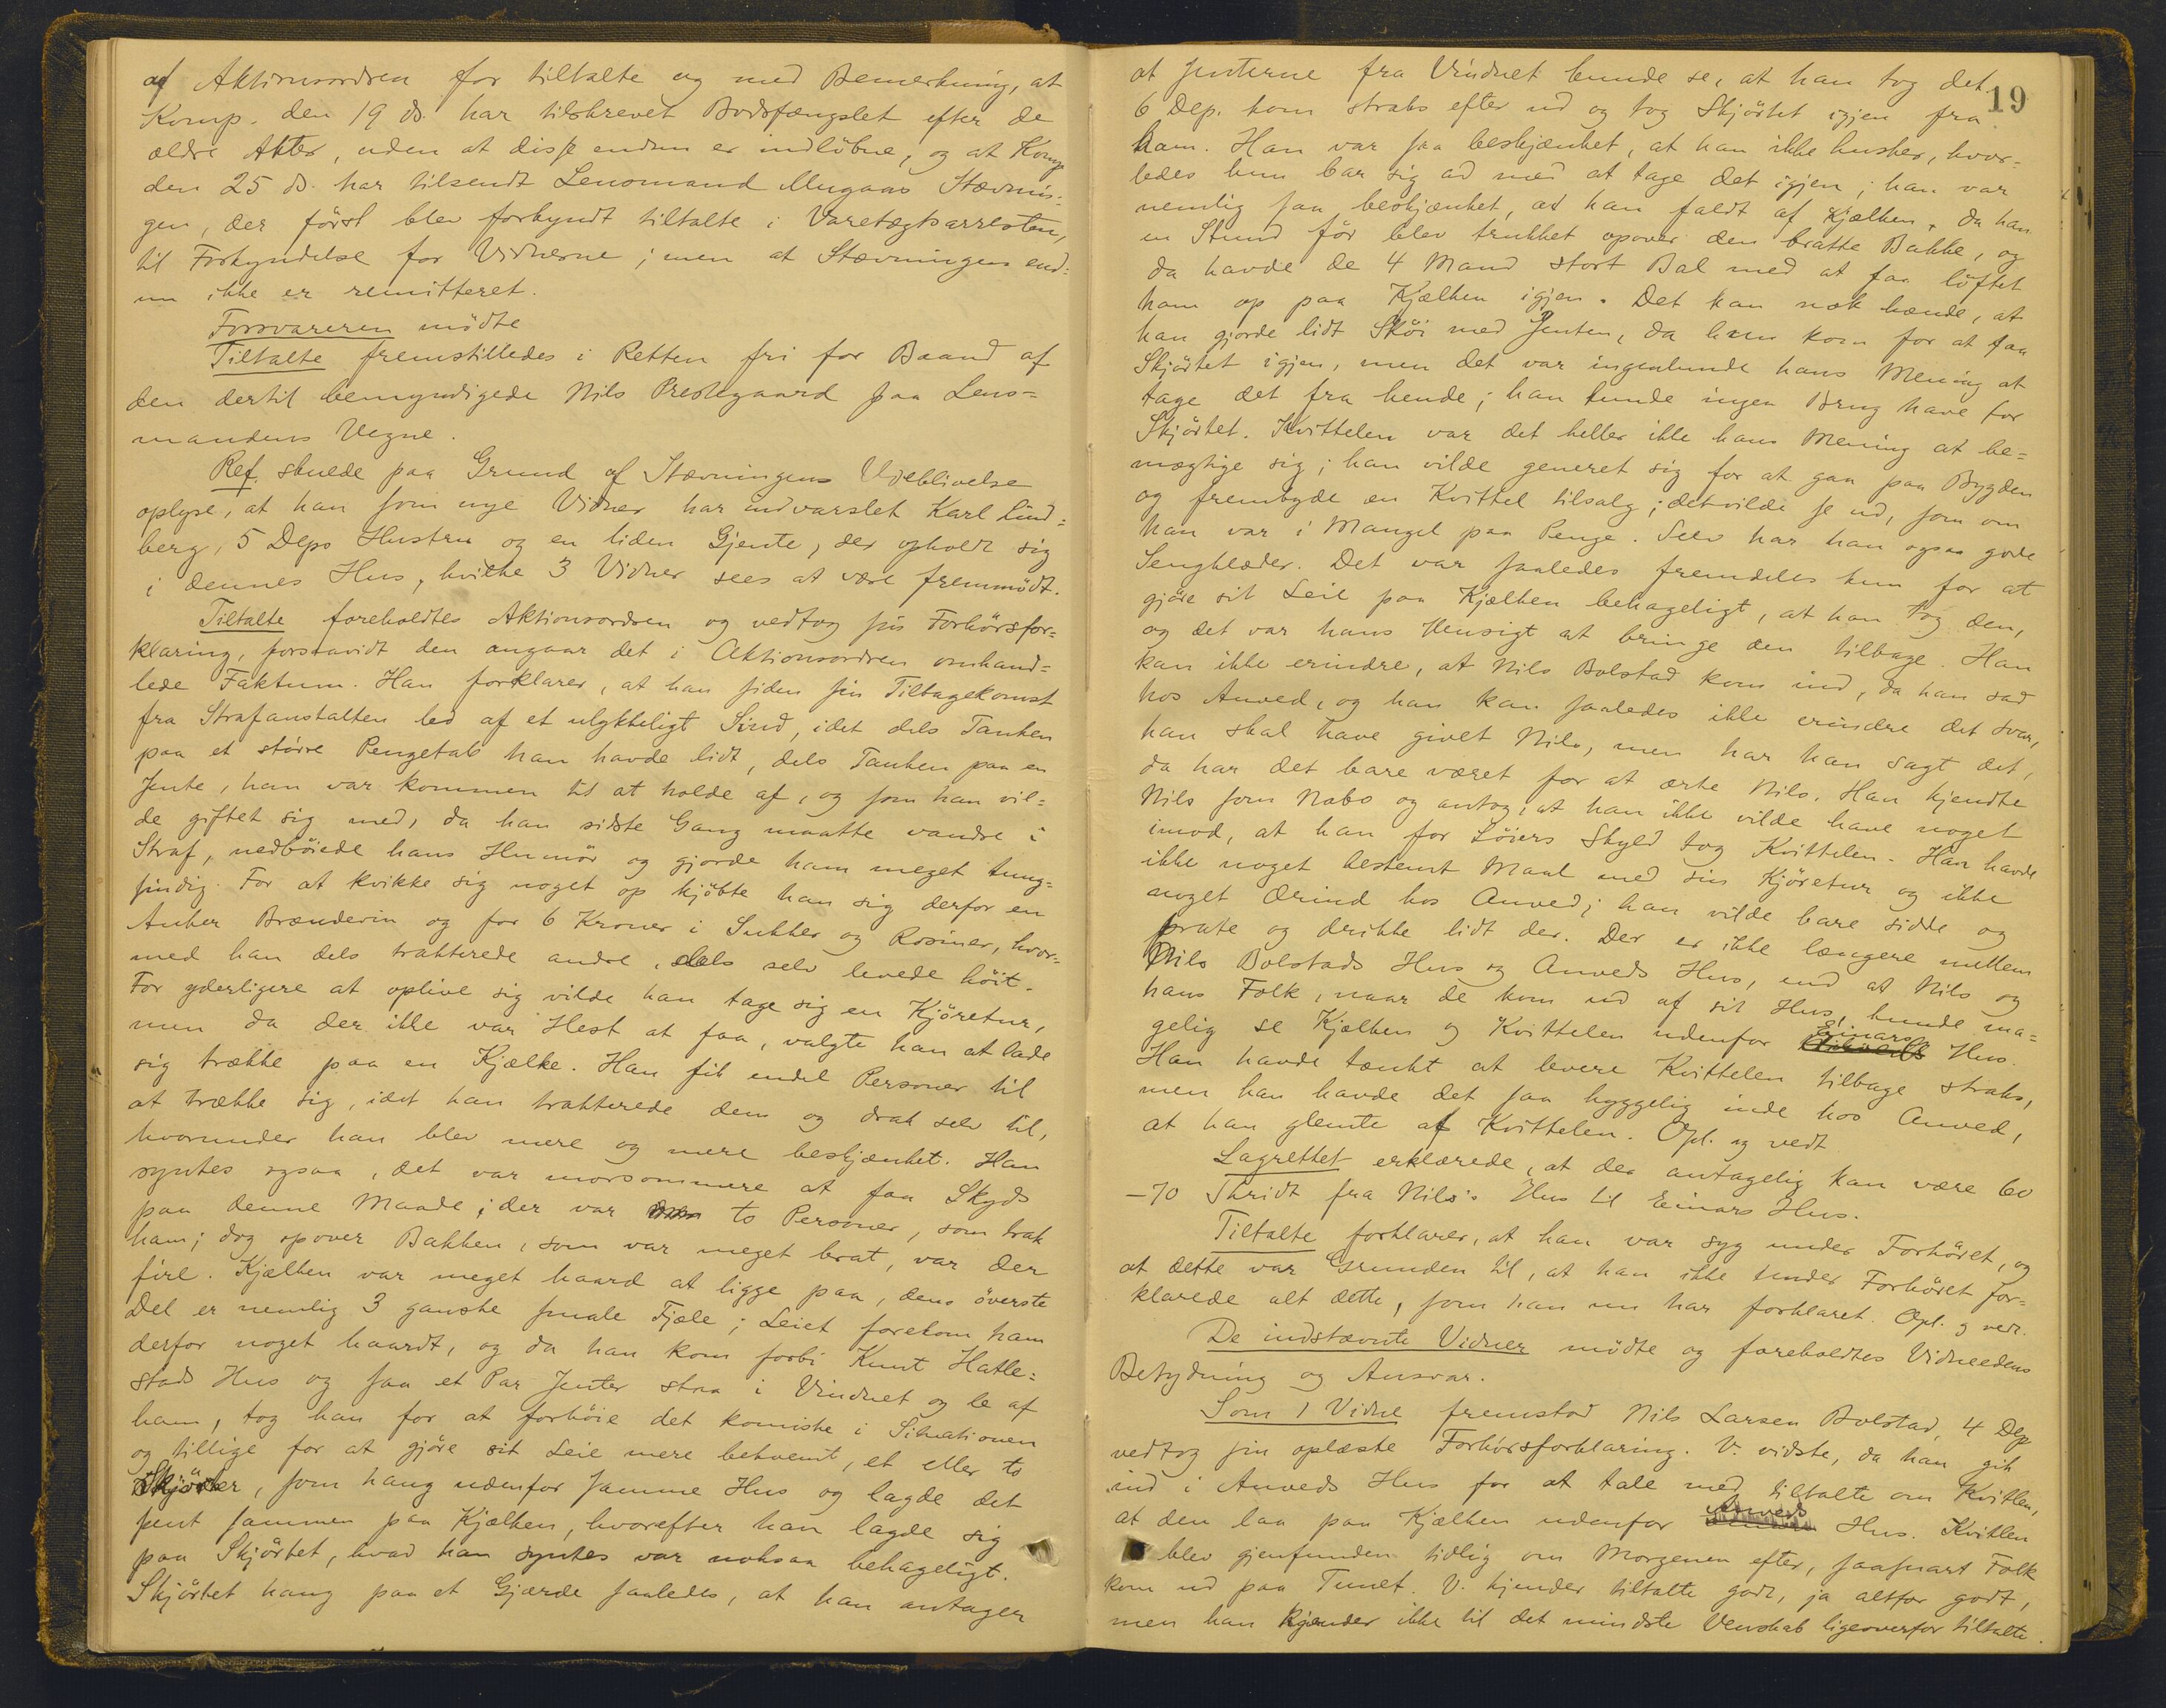 af Aktionsordren for tiltalte og med Bemerkning, at
Komp. den 19 ds. har tilskrevet Bodsfængslet efter de
ældre Akter, uden at disse endnu er indløbne, og at Komp
den 25 ds. har tilsendt Lensmand Mugaas Stævnin-
gen, der først blev forkyndt tiltalte i Varetægtsarresten,
til Forkyndelse for Vidnerne; men at Stævningen end-
nu ikke er remitteret.
Forsvareren mødte
Tiltalte fremstilledes i Retten fri for Baand af
den dertil bemyndigede Nils Prestegaard paa Lens=
mandens Vegne.
Ref. skulde paa Grund af Stævningens Udeblivelse
oplyse, at han som nye Vidner har indvarslet Karl Lind=
berg, 5 Deps Hustru og en liden Gjente, der opholdt sig
i dennes Hus, hvilke 3 Vidner sees at være fremmødt.
Tiltalte foreholdtes Aktionsordren og vedtog sin Forhørsfor=
klaring, forsaavidt den angaar det i Aktionsordren omhand=
lede Faktum. Han forklarer, at han siden sin Tilbagekomst
fra Strafanstalten led af et ulykkeligt Sind, idet dels Tanken
paa et større Pengetab han havde lidt, dels Tanken paa en
Jente, han var kommen til at holde af, og som han vil=
de giftet sig med, da han sidste Gang maatte vandre i
Straf, nedbøiede hans Humør og gjorde ham meget tung=
sindig. For at kvikke sig noget op kjøbte han sig derfor en
Anker Brændevin og for 6 Kroner i Sukker og Rosiner, hvor=
med han dels trakterede andre, dels selv levede høit.
For yderligere at oplive sig vilde han tage sig en Kjøretur,
men da der ikke var Hest at faa, valgte han at lade
sig trække paa en Kjælke. Han fik endel Personer til
at trække sig, idet han trakterede dem og drak selv til,
hvorunder han blev mere og mere beskjænket. Han
syntes ogsaa, det var morsommere at faa Skyds
paa denne Maade; der var to Personer, som trak
ham; dog opover Bakken, som var meget brat, var der
fire. Kjælken var meget haard at ligge paa, dens øverste
Del er nemlig 3 ganske smale Fjæle; Leiet forekom ham
derfor noget haardt, og da han kom forbi Knut Hatle=
stads Hus og saa et Par Jenter staa i Vinduet og le af
ham, tog han for at forhøie det komiske i Situationen
og tillige for at gjøre sit Leie mere bekvemt, et eller to
Skjørter, som hang udenfor samme Hus og lagde det
pent sammen paa Kjælken, hvorefter han lagde sig
paa Skjørtet, hvad han syntes var noksaa behageligt.
Skjørtet hang paa et Gjærde saaledes, at han antager
19
at Jenterne fra Vinduet kunde se, at han tog det.
6 Dep. kom straks efter ud og tog Skjørtet igjen fra
ham. Han var saa beskjænket, at han ikke husker, hvor=
ledes hun bar sig ad med at tage det igjen; han var
nemlig saa beskjænket, at han faldt af Kjælken, da han
en Stund før blev trukket opover den bratte Bakke, og
da havde de 4 Mand stort Bal med at faa løftet
ham op paa Kjælken igjen. Det kan nok hænde, at
han gjorde lidt Skøi med Jenten, da hun kom for at faa
Skjørtet igjen, men det var ingenlunde hans Mening at
tage det fra hende; han kunde ingen Brug have for
Skjørtet. Kvittelen var det heller ikke hans Mening at be=
mægtige sig; han vilde generet sig for at gaa paa Bygden
og frembyde en Kvittel tilsalg; det vilde se ud, som om
han var i Mangel paa Penge. Selv har han ogsaa gode
Sengklæder. Det var saaledes fremdeles kun for at
gjøre sit Leie paa Kjælken behageligt, at han tog den,
og det var hans Hensigt at bringe den tilbage. Han
kan ikke erindre, at Nils Bolstad kom ind, da han sad
hos Anved, og han kan saaledes ikke erindre det svar,
han skal have givet Nils, men har han sagt det,
da har det bare været for at ærte Nils. Han kjendte
Nils som Nabo og antog, at han ikke vilde have noget
imod, at han for Løiers Skyld tog Kvittelen. Han havde
ikke noget bestemt Maal med sin Kjøretur og ikke
noget Ærind hos Anved; han vilde bare sidde og
prate og drikke lidt der. Der er ikke længere mellem
Nils Bolstads Hus og Anveds Hus, end at Nils og
hans Folk, naar de kom ud af sit Hus, kunde ma=
gelig se Kjælken og Kvittelen udenfor Einars Hus.
Han havde tænkt at levere Kvittelen tilbage straks,
men han havde det saa hyggelig inde hos Anved,
at han glemte af Kvittelen. Opl. og vedt
Lagrettet erklærede, at der antagelig kan være 60
-70 Skridt fra Nils's Hus til Einars Hus.
Tiltalte forklarer, at han var syg under Forhøret, og
at dette var Grunden til, at han ikke under Forhøret for=
klarede alt dette, som han nu har forklaret. Opl. og vedt.
De indstævnte Vidner mødte og foreholdtes Vidneedens
Betydning og Ansvar.
Som 1 Vidne fremstod Nils Larsen Bolstad, 4 Dep
vedtog sin oplæste Forhørsforklaring. V. vidste, da han gik
ind i Anveds Hus for at tale med tiltalte om Kvitlen,
at den laa paa Kjælken udenfor Anveds Hus. Kvitlen
blev gjenfunden tidlig om Morgenen efter, saasnart Folk
kom ud paa Tunet. V. kjender tiltalte godt, ja altfor godt,
men han kjender ikke til det mindste Venskab ligeoverfor tiltalte.